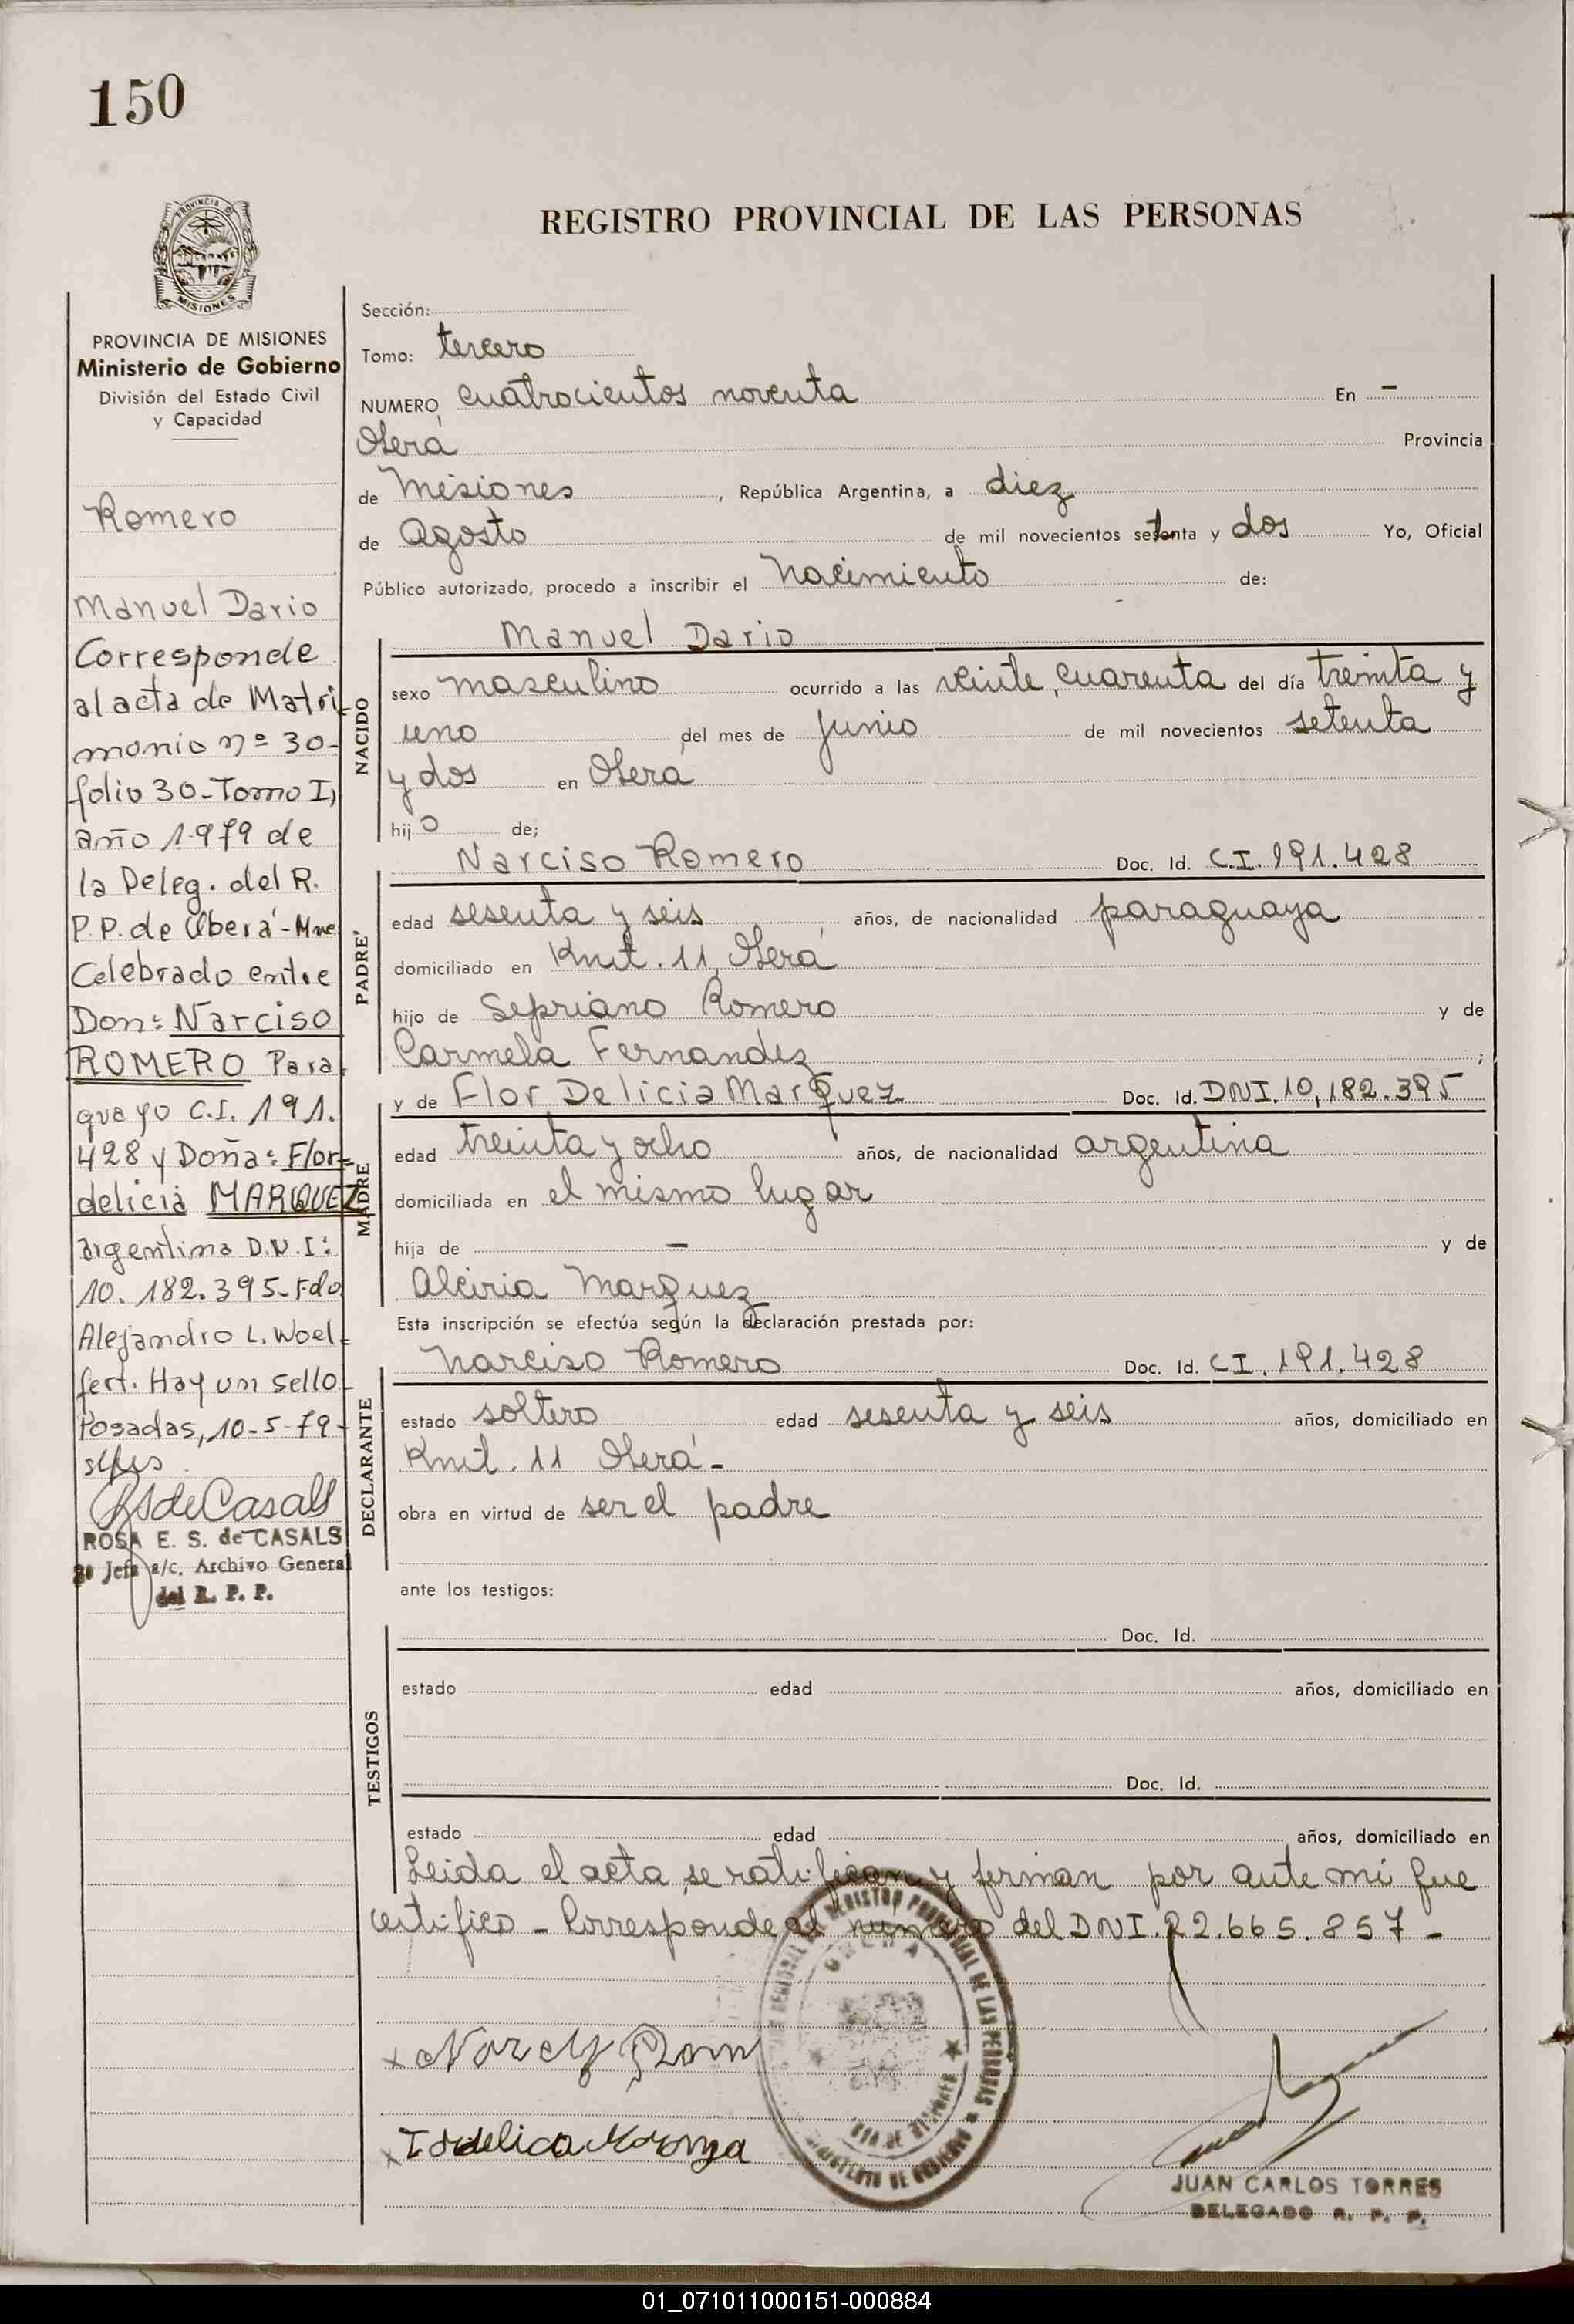 150
REGISTRO PROVINCIAL DE LAS PERSONAS
PROVINCIA DE
MISIONES
PROVINCIA DE MISIONES
Ministerio de Gobierno
División del Estado Civil
y Capacidad
Romero
Manuel Dario
Corresponde
al acta de Matri-
monio nº 30-
folio 30-Tomo I,
año 1.979 de
la Deleg. del R.
P.P. de Oberá-Mnes
Celebrado entre
Don: Narciso
ROMERO Para
guayo C.I. 191.
428 y Doña: Flor-
delicia MARQUEZ
argentina D.N.I:
10.182.395-Fdo
Alejandro L. Woel-
fert. Hay un sello-
Posadas, 10-5-79-
RSdeCasals
ROSA E. S. de CASALS
2º Jefa a/c. Archivo General
del R. P. P.
Sección:
Tomo: tercero
NUMERO, cuatrocientos noventa En -
Oberá Provincia
de Misiones, República Argentina, a diez
de Agosto de mil novecientos setenta y dos Yo, Oficial
Público autorizado, procedo a inscribir el Nacimiento de:
NACIDO
Manuel Dario
sexo masculino ocurrido a las veinte, cuarenta del día treinta y
uno del mes de Junio de mil novecientos setenta
y dos en Oberá
hijo de;
PADRE
Narciso Romero Doc. Id. C.I. 191.428
edad sesenta y seis años, de nacionalidad paraguaya
domiciliado en Kmt. 11, Oberá
hijo de Sepriano Romero y de
Carmela Fernandez;
MADRE
y de Flor Delicia Marquez Doc. Id. DNI.10,182.395
edad treinta y ocho años, de nacionalidad argentina
domiciliada en el mismo lugar
hija de - y de
Alciria Marquez
Esta inscripción se efectúa según la declaración prestada por:
DECLARANTE
Narciso Romero Doc. Id. CI.191.428
estado soltero edad sesenta y seis años, domiciliado en
Kmt. 11 Oberá-
obra en virtud de ser el padre
ante los testigos:
TESTIGOS
Doc. Id.
estado edad años, domiciliado en
Doc. Id.
estado edad años, domiciliado en
Leida el acta, se ratifican y firman por ante mi que
certifico - Corresponde al número del DNI.22.665.857-
JUAN CARLOS TORRES
DELEGADO R. P. P.
01_071011000151-000884